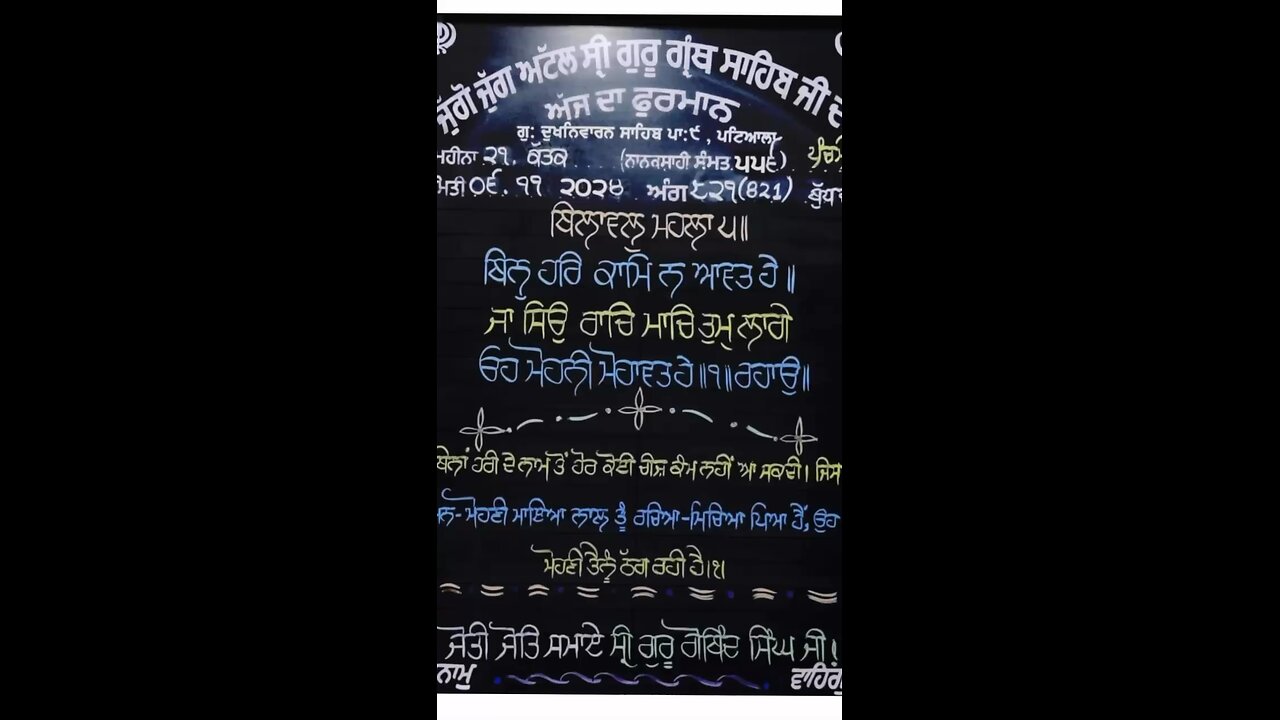 ਜੁੱਗੋ ਜੁੱਗ ਅਟੱਲ ਸ੍ਰੀ ਗੁਰੂ ਗ੍ਰੰਥ ਸਾਹਿਬ ਜੀ ਦ
ਅੱਜ ਦਾ ਫੁਰਮਾਨ
ਗੁ: ਦੁਖਨਿਵਾਰਨ ਸਾਹਿਬ ਪਾ:੯, ਪਟਿਆਲਾ
ਮਹੀਨਾ ੨੧. ਕੱਤਕ (ਨਾਨਕਸਾਹੀ ਸੰਮਤ ੫੫੬)
ਮਿਤੀ ੦੬. ੧੧ ੨੦੨੪ ਅੰਗ ੮੨੧(821)
ਬਿਲਾਵਲੁ ਮਹਲਾ ੫॥
ਬਿਨੁ ਹਰਿ ਕਾਮਿ ਨ ਆਵਤ ਹੇ ॥
ਜਾ ਸਿਉ ਰਾਚਿ ਮਾਚਿ ਤੁਮੁ ਲਾਗੇ
ਓਹ ਮੋਹਨੀ ਮੋਹਾਵਤ ਹੇ ॥੧॥ ਰਹਾਉ॥
ਬਿਨਾਂ ਹਰੀ ਦੇ ਨਾਮ ਤੋਂ ਹੋਰ ਕੋਈ ਚੀਜ਼ ਕੰਮ ਨਹੀਂ ਆ ਸਕਦੀ। ਜਿਸ
ਮਨ-ਮੋਹਣੀ ਮਾਇਆ ਨਾਲ ਤੂੰ ਰਚਿਆ-ਮਿਚਿਆ ਪਿਆ ਹੈਂ, ਉਹ
ਮੋਹਣੀ ਤੈਨੂੰ ਠੱਗ ਰਹੀ ਹੈ।੧।
ਜੋਤੀ ਜੋਤਿ ਸਮਾਏ ਸ੍ਰੀ ਗੁਰੂ ਗੋਬਿੰਦ ਸਿੰਘ ਜੀ।
ਨਾਮੁ ਵਾਹਿਗੁ